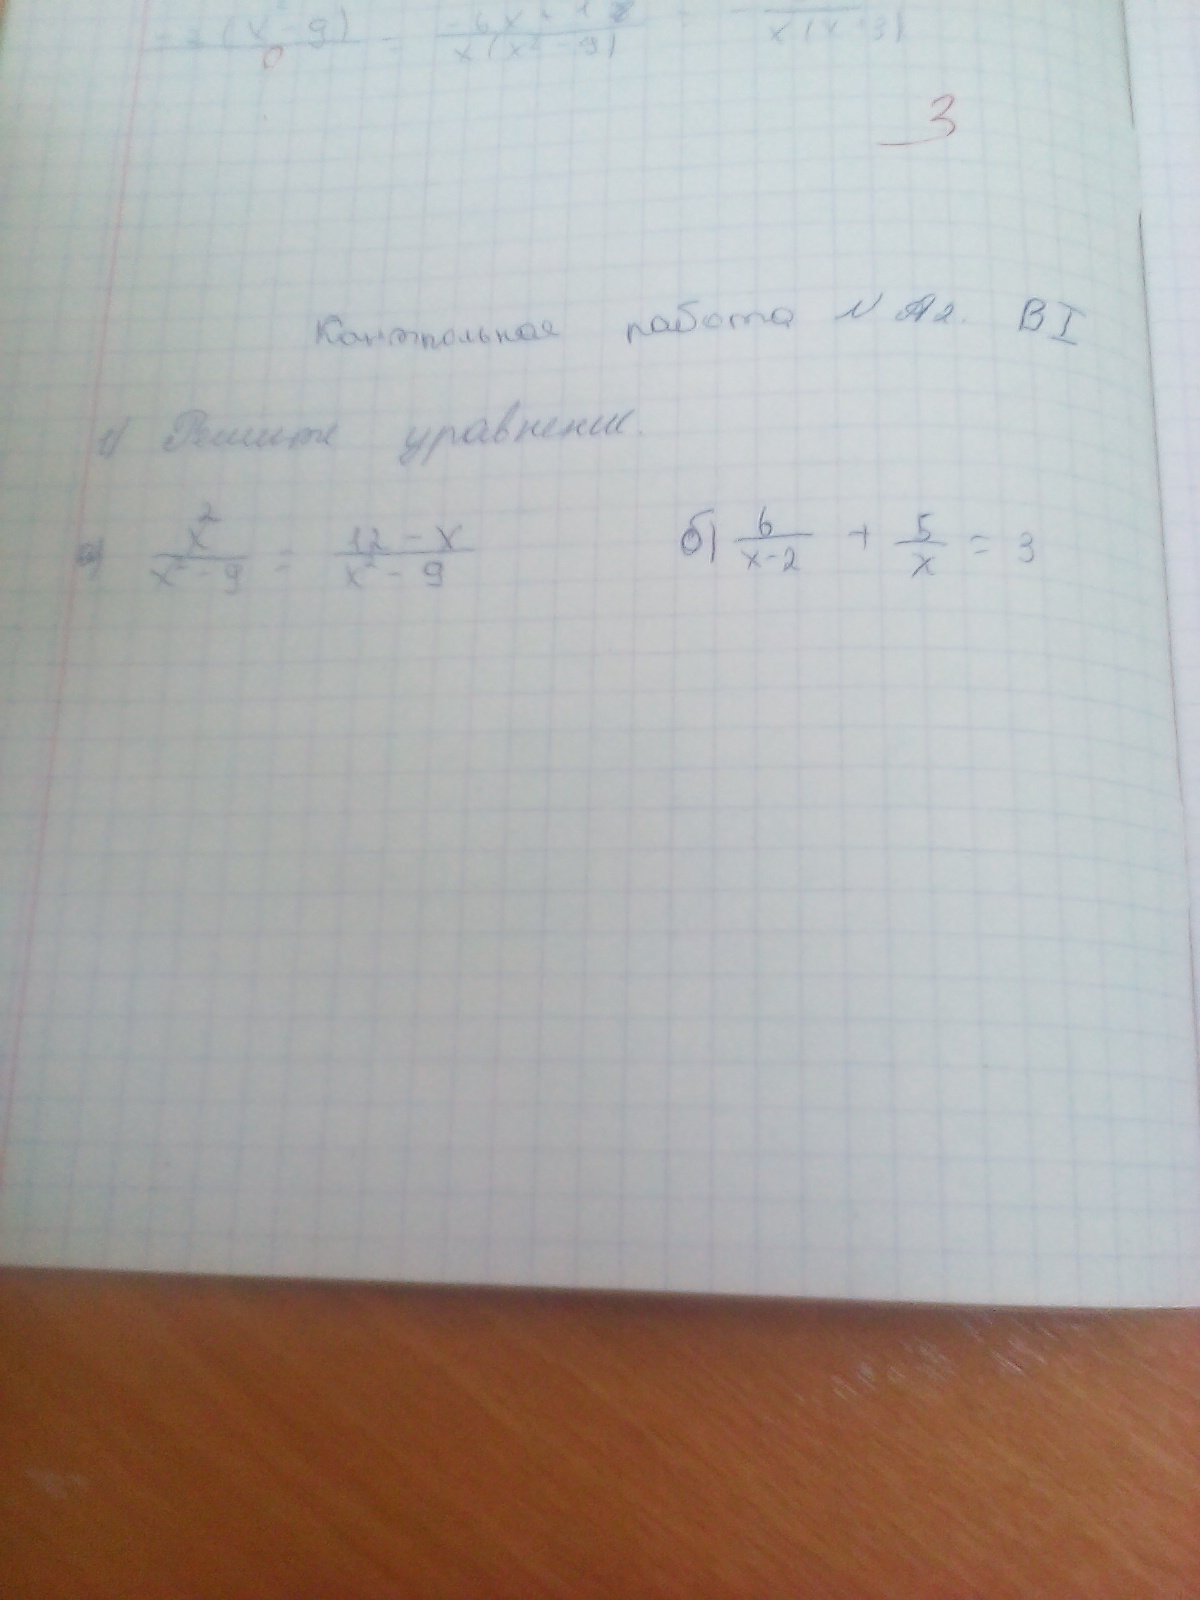 -3(x²-9) = -6x+18 = -
0 x(x²-9) x(x-3)
3
Контрольная работа N А2. В I
1) Решите уравнение.
а) x²/(x²-9) = (12-x)/(x²-9) б) 6/(x-2) + 5/x = 3